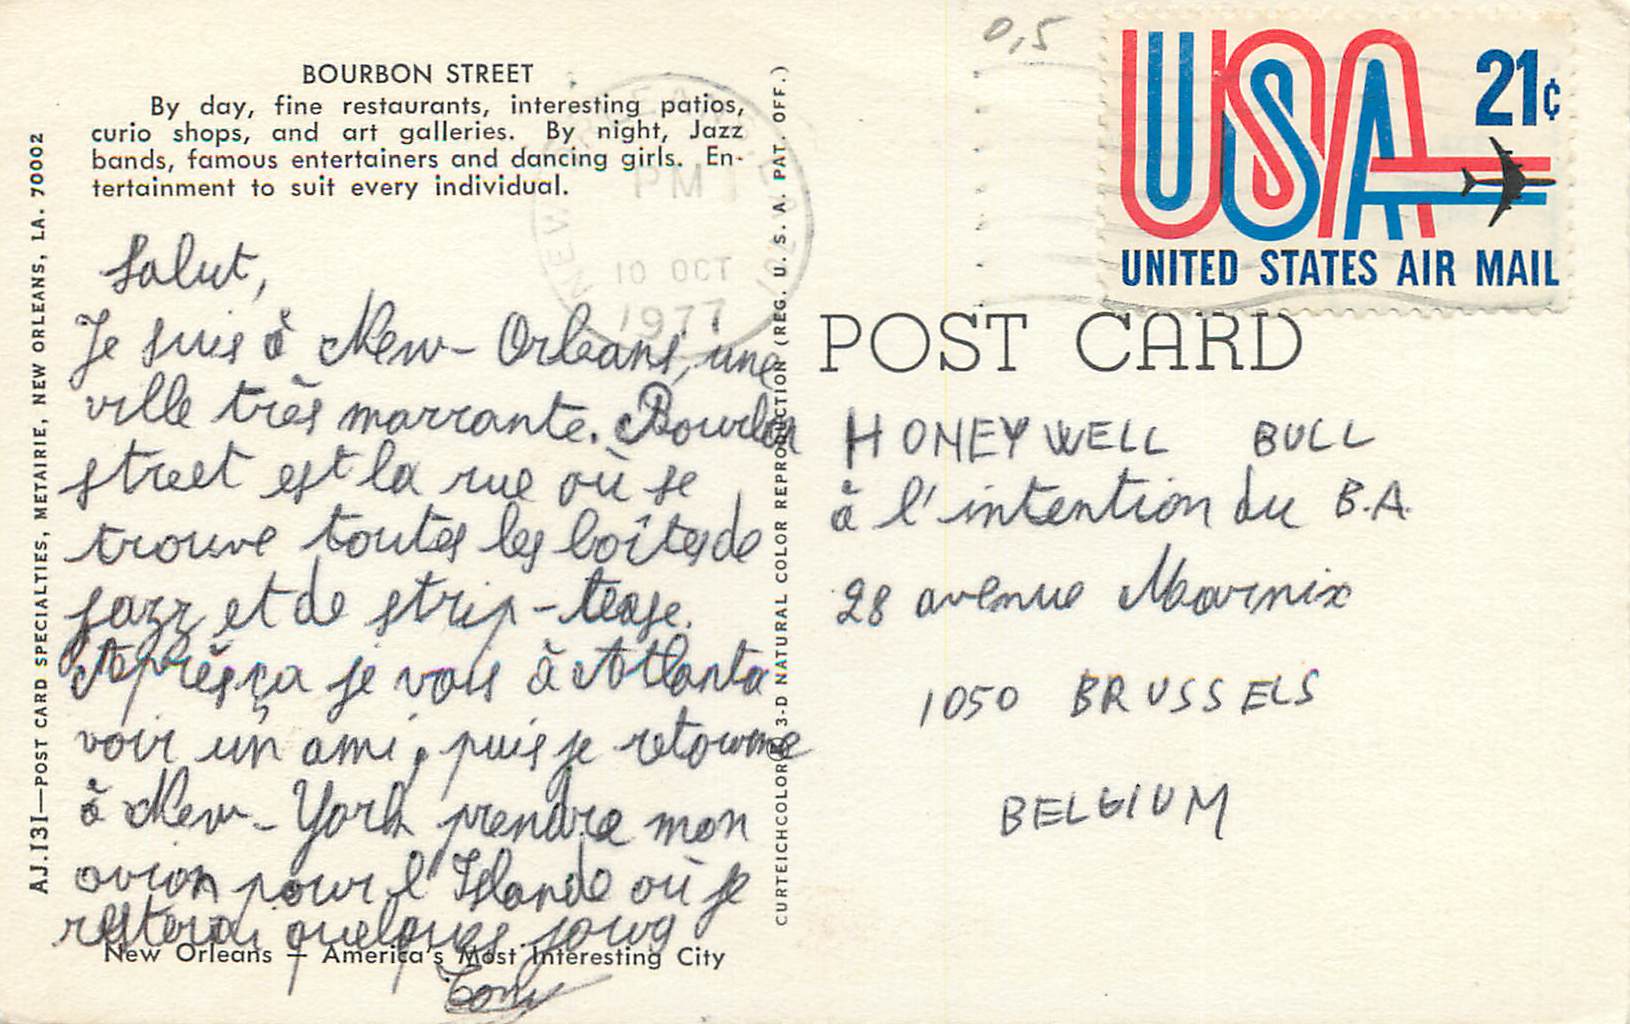 BOURBON STREET
By day, fine restaurants, interesting patios,
curio shops, and art galleries. By night, Jazz
bands, famous entertainers and dancing girls. En-
tertainment to suit every individual.
AJ.131—POST CARD SPECIALTIES, METAIRIE, NEW ORLEANS, LA. 70002
Salut,
Je suis à New-Orleans, une
ville très marrante. Bourbon
street est la rue où se
trouve toutes les boîtes de
jazz et de strip-tease.
Après ça je vais à Atlanta
voir un ami, puis je retourne
à New-York prendre mon
avion pour l'Islande où je
resterai quelques jours
Tony
New Orleans — America's Most Interesting City
CURTEICHCOLOR® 3-D NATURAL COLOR REPRODUCTION (REG. U. S. A. PAT. OFF.)
NEW ORLEANS
PM
10 OCT
1977
0,5
USA 21¢
UNITED STATES AIR MAIL
POST CARD
HONEYWELL BULL
à l'intention du B.A.
28 avenue Marnix
1050 BRUSSELS
BELGIUM